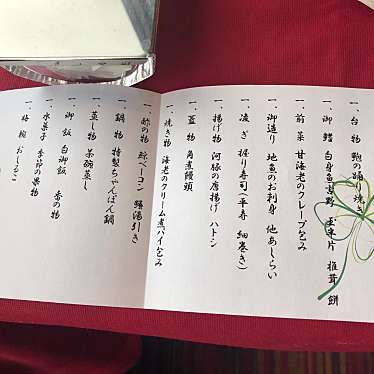 一、台物 鮑の踊り焼き
一、御鰭 白身魚 玉子 唐墨片 椎茸 餅
一、前菜 甘海老のクレープ包み
一、御造り 地魚のお刺身 他あしらい
一、凌ぎ 握り寿司(平寿 細巻き)
一、揚げ物 河豚の唐揚げ ハトシ
一、蓋物 角煮饅頭
一、焼き物 海老のクリーム煮パイ包み
一、酢の物 鯨ベーコン 鱶湯引き
一、鍋物 特製ちゃんぽん鍋
一、蒸し物 茶碗蒸し
一、御飯 白御飯 香の物
一、水菓子 季節の果物
一、梅椀 おしるこ